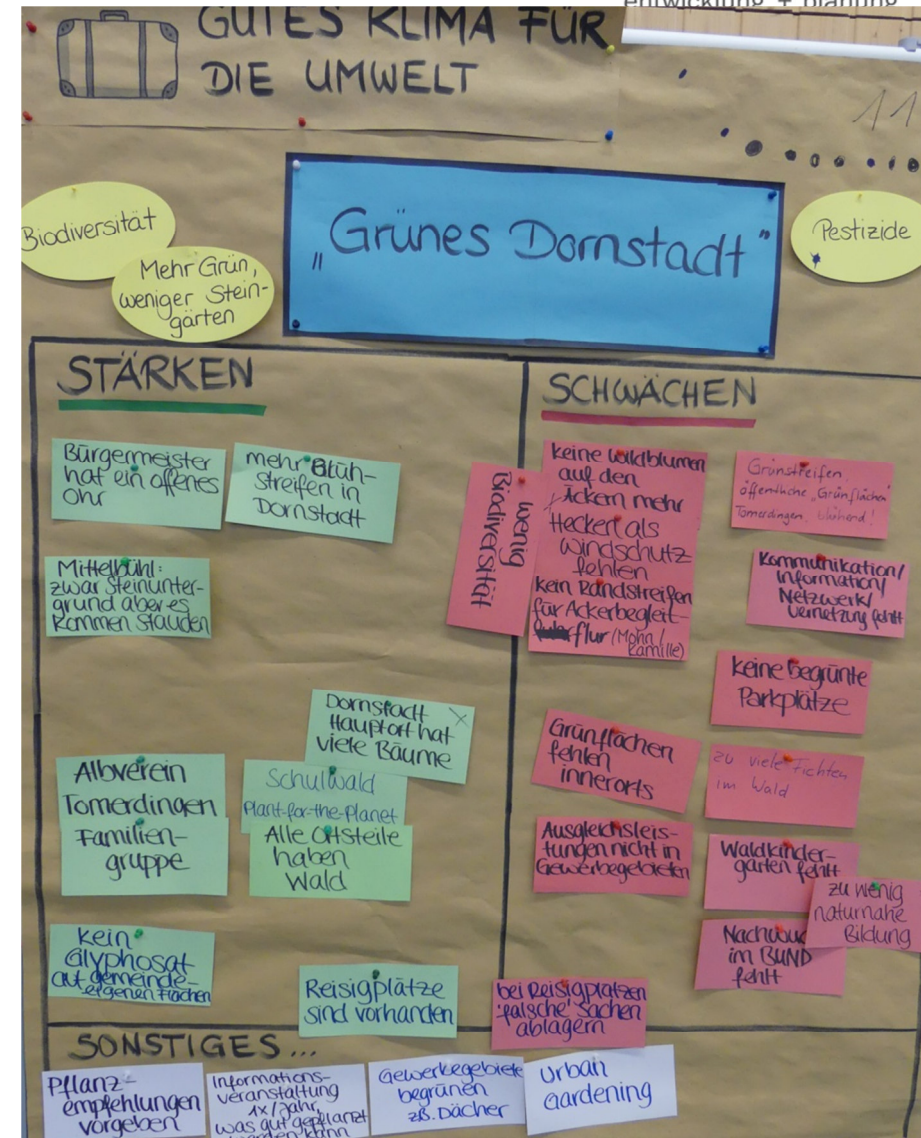 entwicklung + planung
GUTES KLIMA FÜR
DIE UMWELT
11
Biodiversität
Mehr Grün,
weniger Stein-
gärten
„Grünes Dornstadt"
Pestizide
STÄRKEN
Bürgermeister
hat ein offenes
Ohr
mehr Blüh-
streifen in
Dornstadt
Mittelbühl:
zwar Steinunter-
grund aber es
kommen Stauden
Dornstadt
Hauptort hat
viele Bäume
Albverein
Tomerdingen
Familien-
gruppe
Schulwald
Plant-for-the-Planet
Alle Ortsteile
haben
Wald
kein
Glyphosat
auf gemeinde-
eigenen Flächen
Reisigplätze
sind vorhanden
SCHWÄCHEN
wenig
Biodiversität
keine Wildblumen
auf den
Äckern mehr
Hecken als
Windschutz
fehlen
kein Randstreifen
für Ackerbegleit-
flur (Mohn/
Kamille)
Grünstreifen,
öffentliche „Grünflächen"
Tomerdingen, blühend!
Kommunikation/
Information/
Netzwerk/
Vernetzung fehlt
keine begrünte
Parkplätze
Grünflächen
fehlen
innerorts
zu viele Fichten
im Wald
Ausgleichsleis-
tungen nicht in
Gewerbegebieten
Waldkinder-
garten fehlt
zu wenig
naturnahe
Bildung
im BUND
fehlt
bei Reisigplätzen
'falsche' Sachen
ablagern
SONSTIGES...
Pflanz-
empfehlungen
vorgeben
Informations-
veranstaltung
1x/Jahr,
was gut gepflanzt
werden kann
Gewerbegebiete
begrünen
zB. Dächer
Urban
Gardening